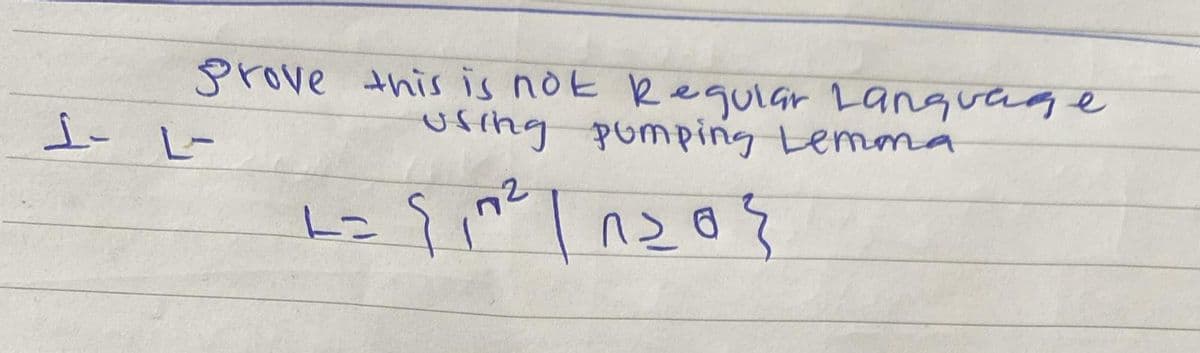 Prove this is not Regular Language
using pumping Lemma
1- L-
L= { 1^n^2 | n≥0 }